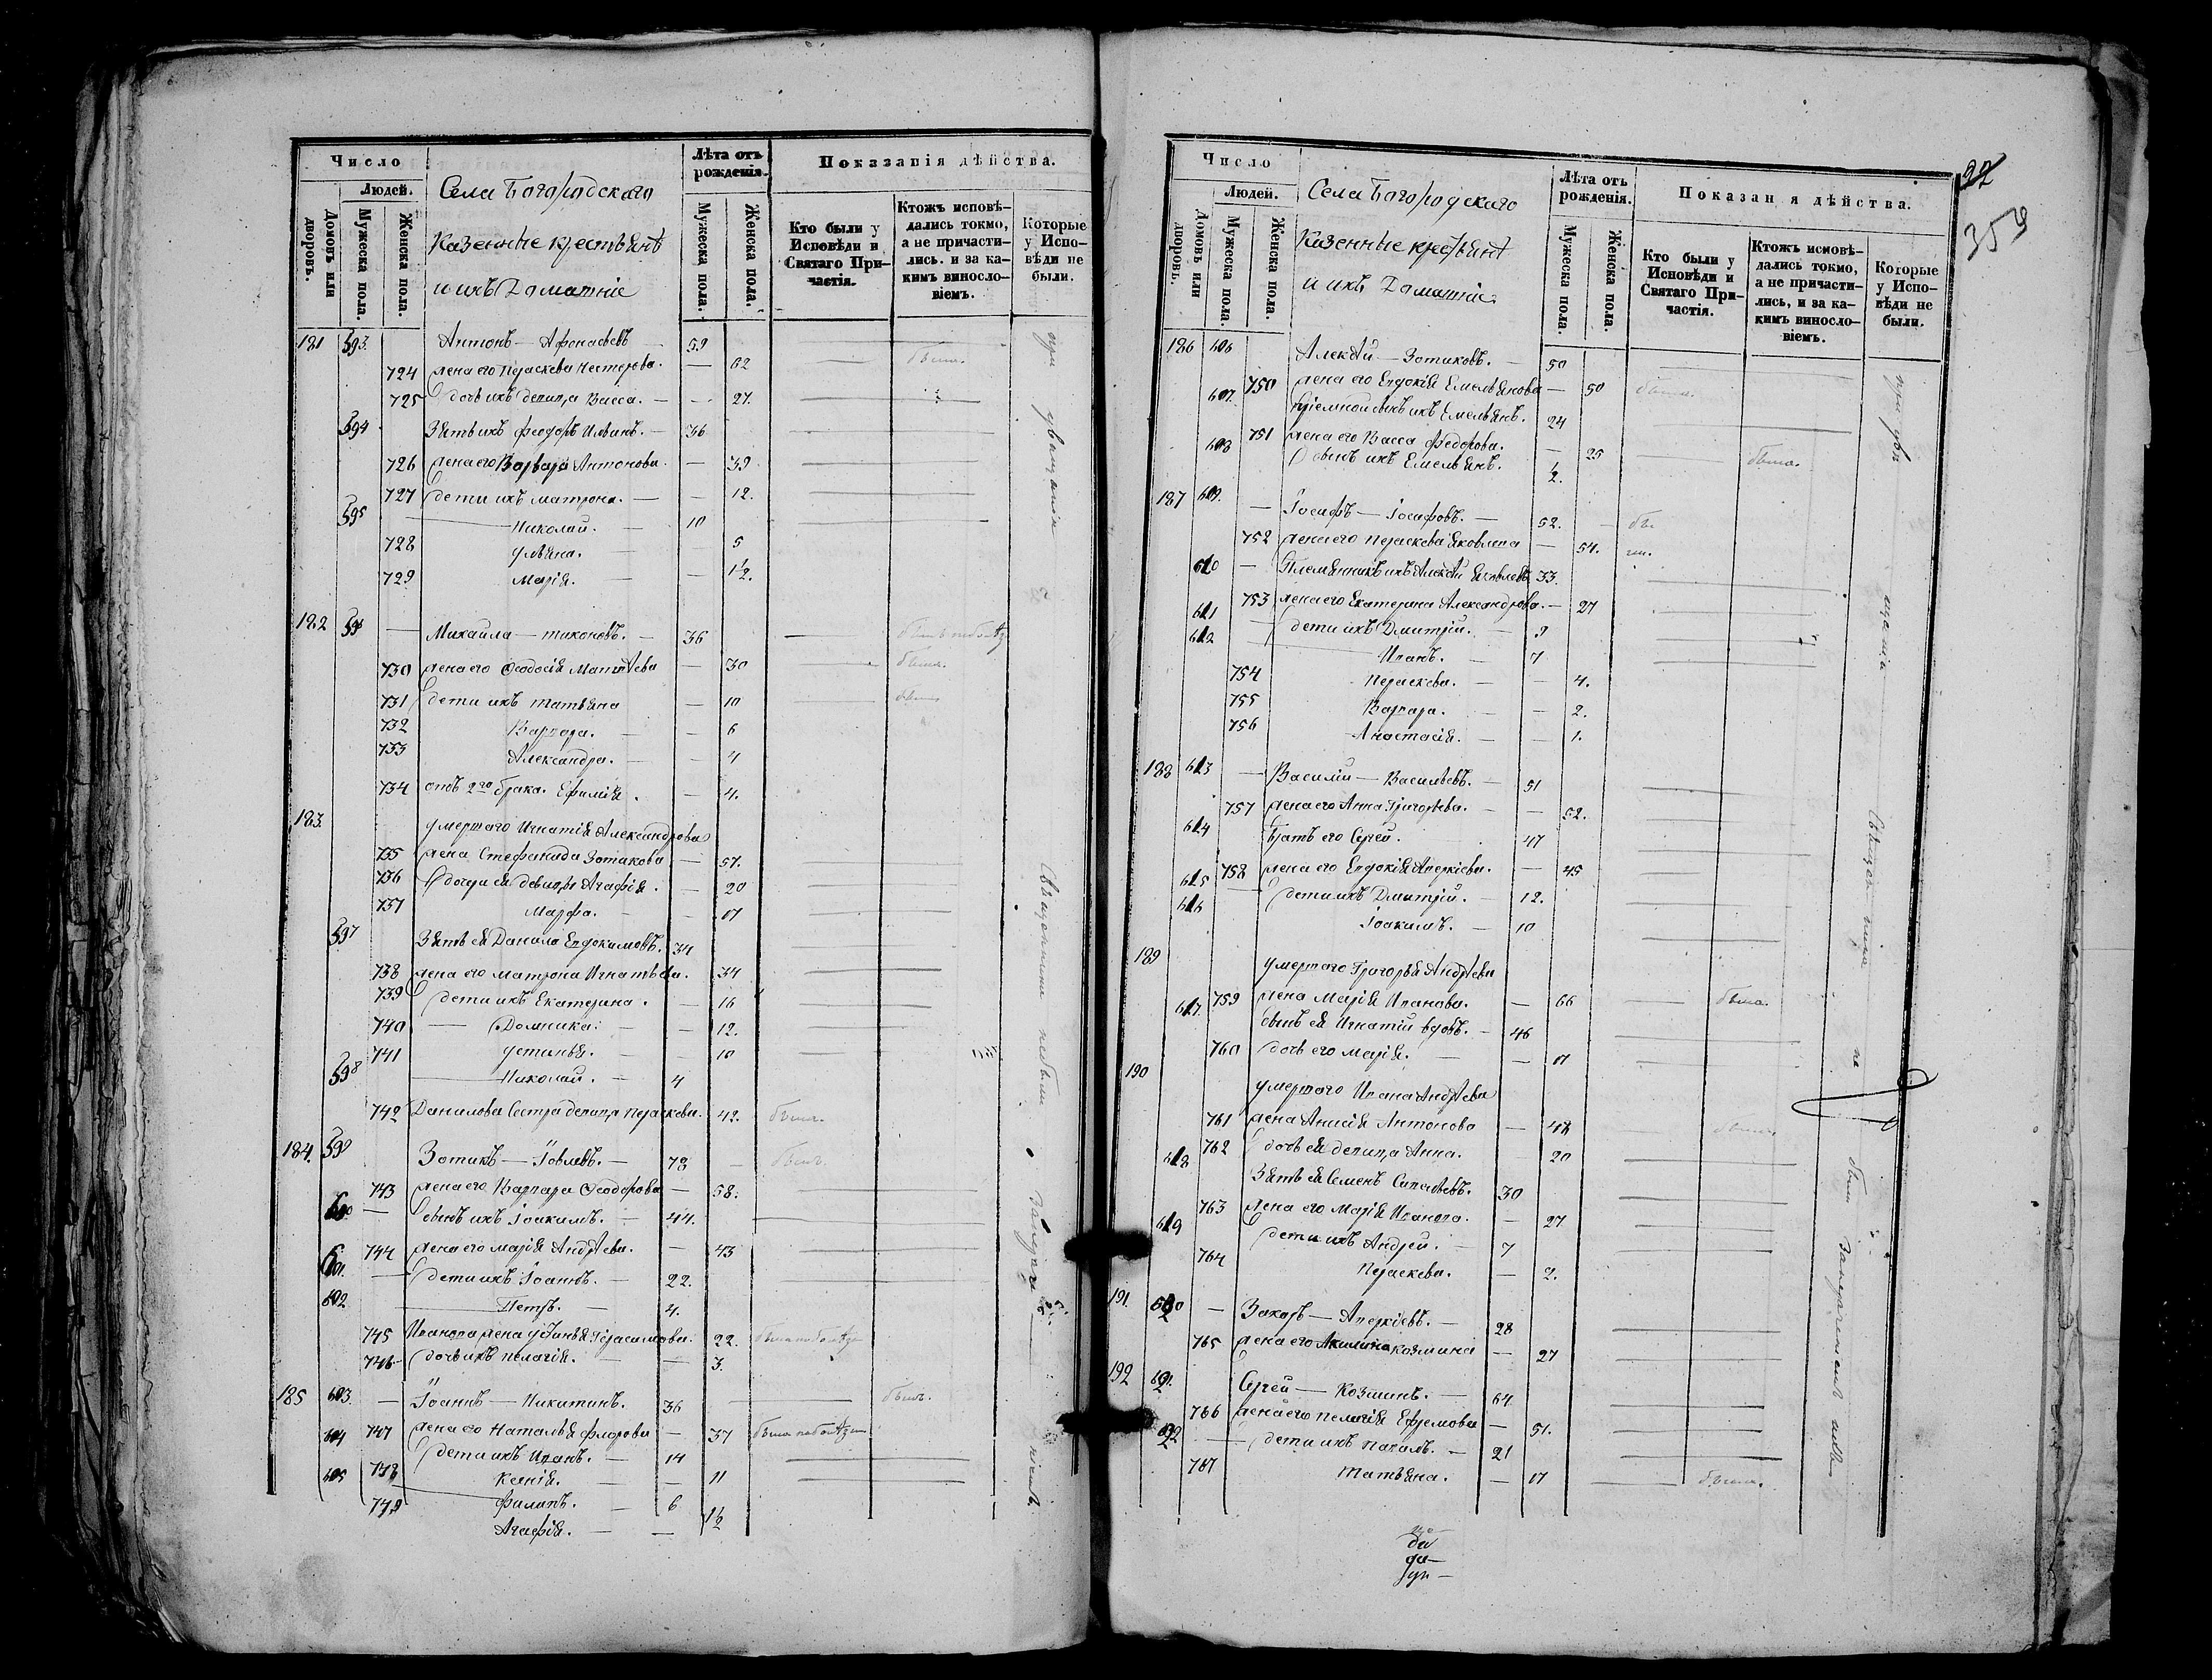 Число
Людей.
Домовъ или дворовъ.
Мужеска пола.
Женска пола.
Села Богородскаго
Казенные крестьянѣ
и ихъ Домашніе
Лѣта отъ рожденія.
Мужеска пола.
Женска пола.
Показанія дѣйства.
Кто были у Исповѣди и Святаго Причастія.
Ктожъ исповѣдались токмо, а не причастились. и за какимъ винословіемъ.
Которые у Исповѣди не были.
181 593. Антонъ — Афонасьевъ 59
724 жена его Параскева Нестерова. — 62 была.
725 дочь ихъ девица Васса. — 27.
594 Зять ихъ Феодоръ Ильинъ. — 36
726 жена его Варвара Антонова. — 39
727 дети ихъ Матрона. — 12.
595 Николай. — 10
728 Ульяна. 5
729 Марія. — 1/2.
182 596 Михаила — Тихоновъ. — 36
730 жена его Ѳеодосія Матвѣева — 30 была.
731 дети ихъ Татьяна — 10
732 Варвара. — 6
733 Александра. — 4
734 отъ 2го брака. Ефимія. — 4.
183. умершаго Игнатія Александрова
735 жена Стефанида Зотикова — 57.
736 дочери ея девицы Агафія. — 20
737 Марфа. — 17
597 Зять ея Данило Евдокимовъ. 34
738 жена его Матрона Игнатьева. 34
739 дети ихъ Екатерина. — 16
740 — Домника. — 12.
741 Устинья. — 10
598 Николай. — 4
742 Данилова Сестра девица Параскева. 42. была.
184. 599 Зотикъ — Іовлевъ. — 78 былъ.
743 жена его Варвара Ѳеодорова — 58.
600 — сынъ ихъ Іоакимъ. — 44.
744 жена его Марія Андрѣева. — 43
601. — дети ихъ Іоаннъ. — 22.
602 Петръ. — 4.
745 Иванова жена Устинья Герасимова. 22.
746 дочь ихъ Пелагія. — 3.
185 603. — Іоаннъ — Никитинъ. 36 былъ.
604 747 жена его Наталья Флорова — 37
дети ихъ Иванъ. — 14
605 748 Ксенія. — 11
Филипъ. — 6
749 Агафія. — 1/2
Число
Людей.
Домовъ или дворовъ.
Мужеска пола.
Женска пола.
Села Богородскаго
Казенные крестьянѣ
и ихъ Домашніе.
Лѣта отъ рожденія.
Мужеска пола.
Женска пола.
Показан я дѣйства.
Кто были у Исповѣди и Святаго Причастія.
Ктожъ исповѣдались токмо, а не причастились, и за какимъ винословіемъ.
Которые у Исповѣди не были.
22
359
186 606 Алексѣй — Зотиковъ. — 50
750 жена его Евдокія Емельянова — 50 была.
607. Пріемной сынъ ихъ Емельянъ. 24
751 жена его Васса Федорова. — 25 была.
608 сынъ ихъ Емельянъ. 1/2.
187 609. — Іосифъ — Іосифовъ. — 52.
752 жена его Параскева Яковлева — 54.
610 — Племянникъ ихъ Алексѣй Яковлевъ 33.
753 жена его Екатерина Александрова. — 27
611 дети ихъ Дмитрій. — 9
612 Иванъ. — 7
754 Параскева. — 4.
755 Варвара. — 2.
756 Анастасія. — 1.
188 613 — Василій — Васильевъ. — 51
757 жена его Анна Григорьева. — 52.
614 Братъ его Сергей. 47
758 жена его Евдокія Аверкіева. — 45
615 дети ихъ Дмитрій. — 12.
616 Іоакимъ. — 10
189 умершаго Григорья Андрѣева
759 жена Марія Иванова. — 66 была.
617. сынъ ея Игнатій вдовъ. — 46
760 дочь его Марія. — 17
190 умершаго Ивана Андрѣева
761 жена Анисія Антонова — 48
762 дочь ея девица Анна. — 20
618 Зять ея Семенъ Савельевъ. 30
763 жена его Марія Иванова. — 27
619 дети ихъ Андрей. — 7
764 Параскева. — 2.
191. 620 — Захаръ — Аверкіевъ. — 28
765 жена его Акилина Козмина — 27
192 621. Сергей — Козминъ. — 64
766 жена его Пелагія Ефремова — 51.
622 — дети ихъ Павелъ. — 21
767 Татьяна. — 17 была.